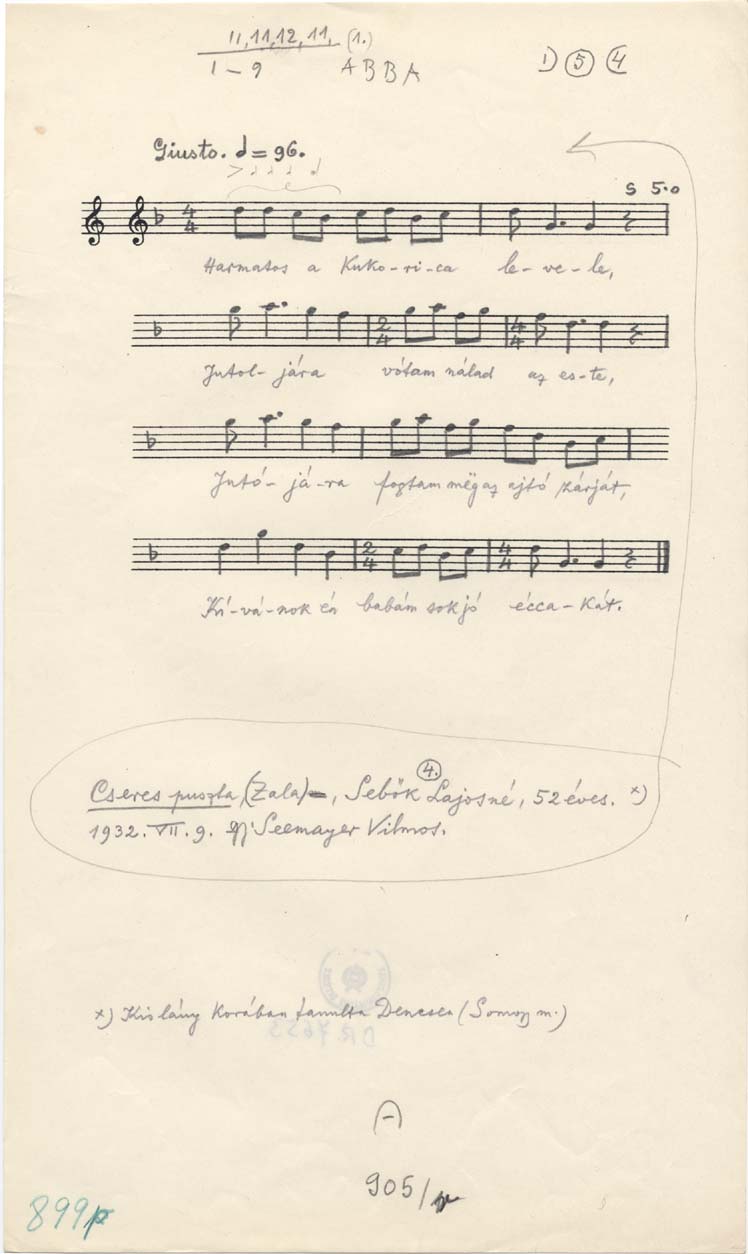 11, 11, 12, 11, (1.)
1–9 ABBA
1) 5 4
Giusto. = 96.
S 5.0
Harmatos a Kuko-ri-ca le-ve-le,
Jutol-jára vótam nálad az es-te,
Jutó-já-ra foptam mëg az ajtó zárját,
Kí-vá-nok én babám sok jó écca-kát.
4.
Cseres puszta, (Zala), Sebők Lajosné, 52 éves. x)
1932. VII. 9. Gy: Seemayer Vilmos.
x) Kislány korában tanulta Dencsen (Somogy m.)
DR 7653
A
905/
899